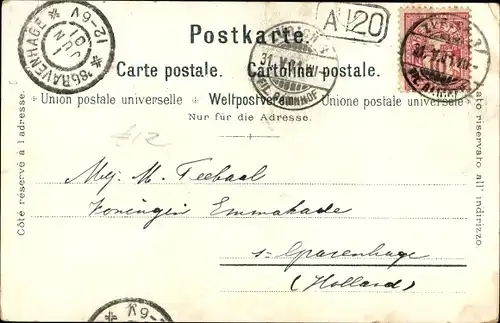 Postkarte.
Carte postale. Cartolina postale.
Union postale universelle. Weltpostverein. Unione postale universale.
Nur für die Adresse.
Côté réservé à l'adresse.
Lato riservato all' indirizzo.
'SGRAVENHAGE
12-6V
1 JUN 01
A 120
£12
Mej. M. Teebaal
Koningin Emmakade
s-Gravenhage
(Holland)
-6V